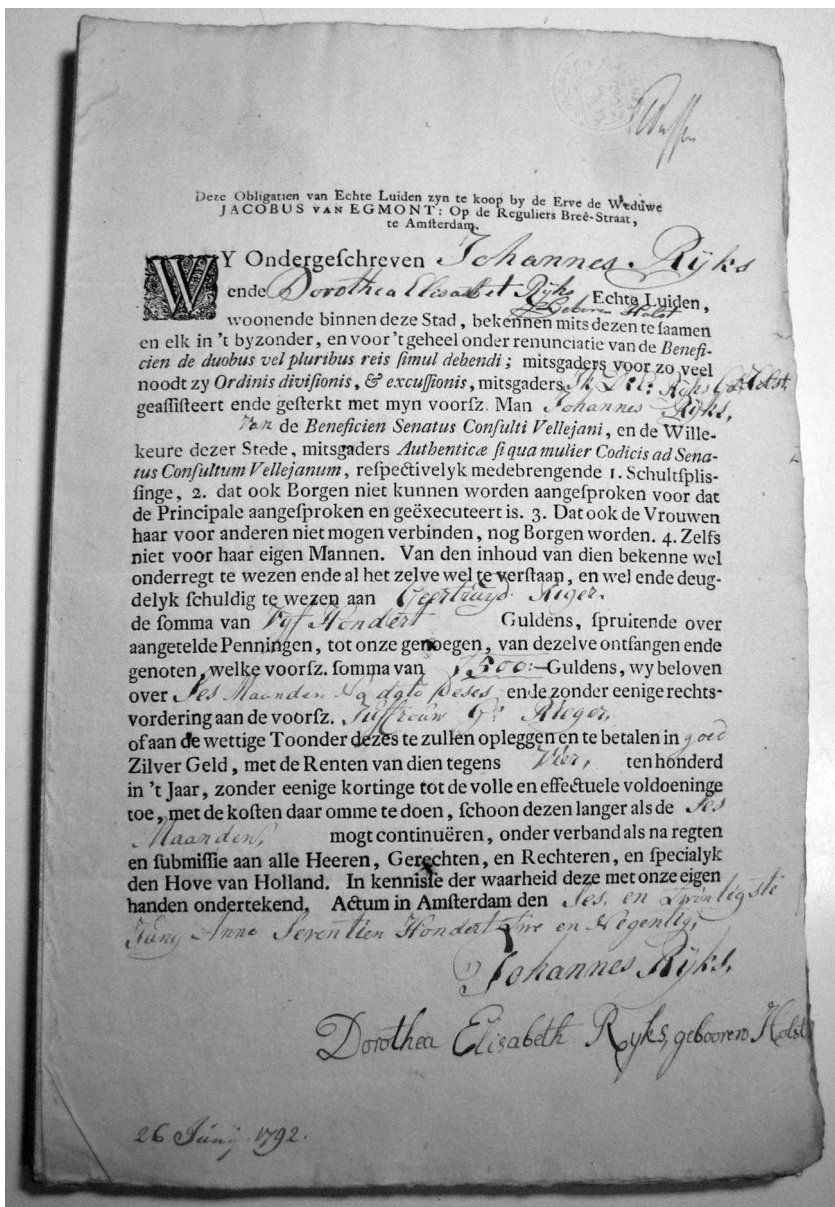 Deze Obligatien van Echte Luiden zyn te koop by de Erve de Weduwe
JACOBUS VAN EGMONT: Op de Reguliers Breê-Straat,
te Amſterdam.
WY Ondergeſchreven Johannes Rÿks
ende Dorothea Elisabet Rÿks Echte Luiden,
Geboren Holst
woonende binnen deze Stad, bekennen mits dezen te ſaamen
en elk in 't byzonder, en voor 't geheel onder renunciatie van de Benefi-
cien de duobus vel pluribus reis ſimul debendi; mitsgaders voor zo veel
noodt zy Ordinis diviſionis, & excuſſionis, mitsgaders Rÿks Holst,
geaſſiſteert ende geſterkt met myn voorſz. Man Johannes Rÿks,
Van de Beneficien Senatus Conſulti Vellejani, en de Wille-
keure dezer Stede, mitsgaders Authenticæ ſi qua mulier Codicis ad Sena-
tus Conſultum Vellejanum, reſpectivelyk medebrengende 1. Schultſpliſ-
ſinge, 2. dat ook Borgen niet kunnen worden aangeſproken voor dat
de Principale aangeſproken en geëxecuteert is. 3. Dat ook de Vrouwen
haar voor anderen niet mogen verbinden, nog Borgen worden. 4. Zelfs
niet voor haar eigen Mannen. Van den inhoud van dien bekenne wel
onderregt te wezen ende al het zelve wel te verſtaan, en wel ende deug-
delyk ſchuldig te wezen aan Geertruyd Rieger.
de ſomma van Vyf Hondert Guldens, ſpruitende over
aangetelde Penningen, tot onze genoegen, van dezelve ontfangen ende
genoten, welke voorſz. ſomma van ƒ500:– Guldens, wy beloven
over Ses Maanden Na dato Deses ende zonder eenige rechts-
vordering aan de voorſz. Juffrouw G. Rieger,
of aan de wettige Toonder dezes te zullen opleggen en te betalen in goed
Zilver Geld, met de Renten van dien tegens Vier, ten honderd
in 't Jaar, zonder eenige kortinge tot de volle en effectuele voldoeninge
toe, met de koſten daar omme te doen, ſchoon dezen langer als de Ses
Maanden, mogt continuëren, onder verband als na regten
en ſubmiſſie aan alle Heeren, Gerechten, en Rechteren, en ſpecialyk
den Hove van Holland. In kenniſſe der waarheid deze met onze eigen
handen ondertekend, Actum in Amſterdam den Ses en Twintigste
Juny Anno Seventien Hondert Twe en Negentig,
Johannes Rÿks,
Dorothea Elisabeth Ryks, gebooren Holst
26 Junÿ 1792.